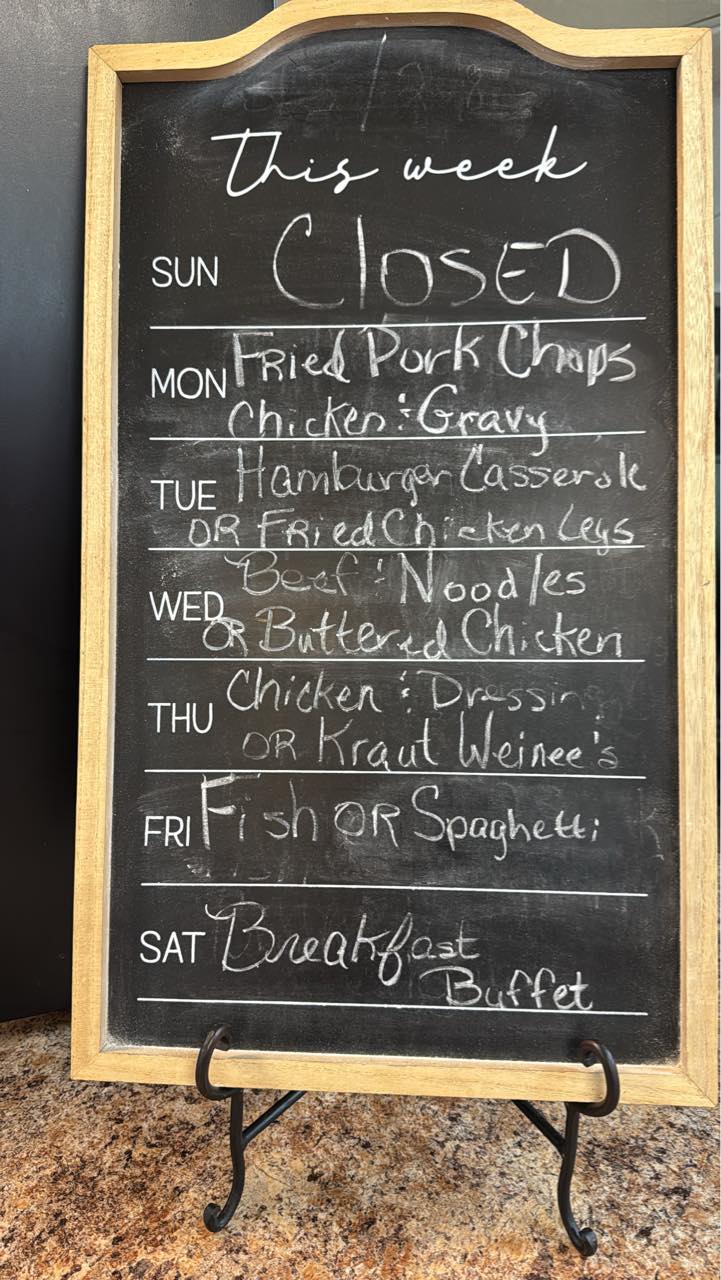 This week
SUN CLOSED
MON Fried Pork Chops
Chicken & Gravy
TUE Hamburger Casserole
OR Fried Chicken Legs
WED Beef & Noodles
OR Buttered Chicken
THU Chicken & Dressing
OR Kraut Weinee's
FRI Fish OR Spaghetti
SAT Breakfast
Buffet